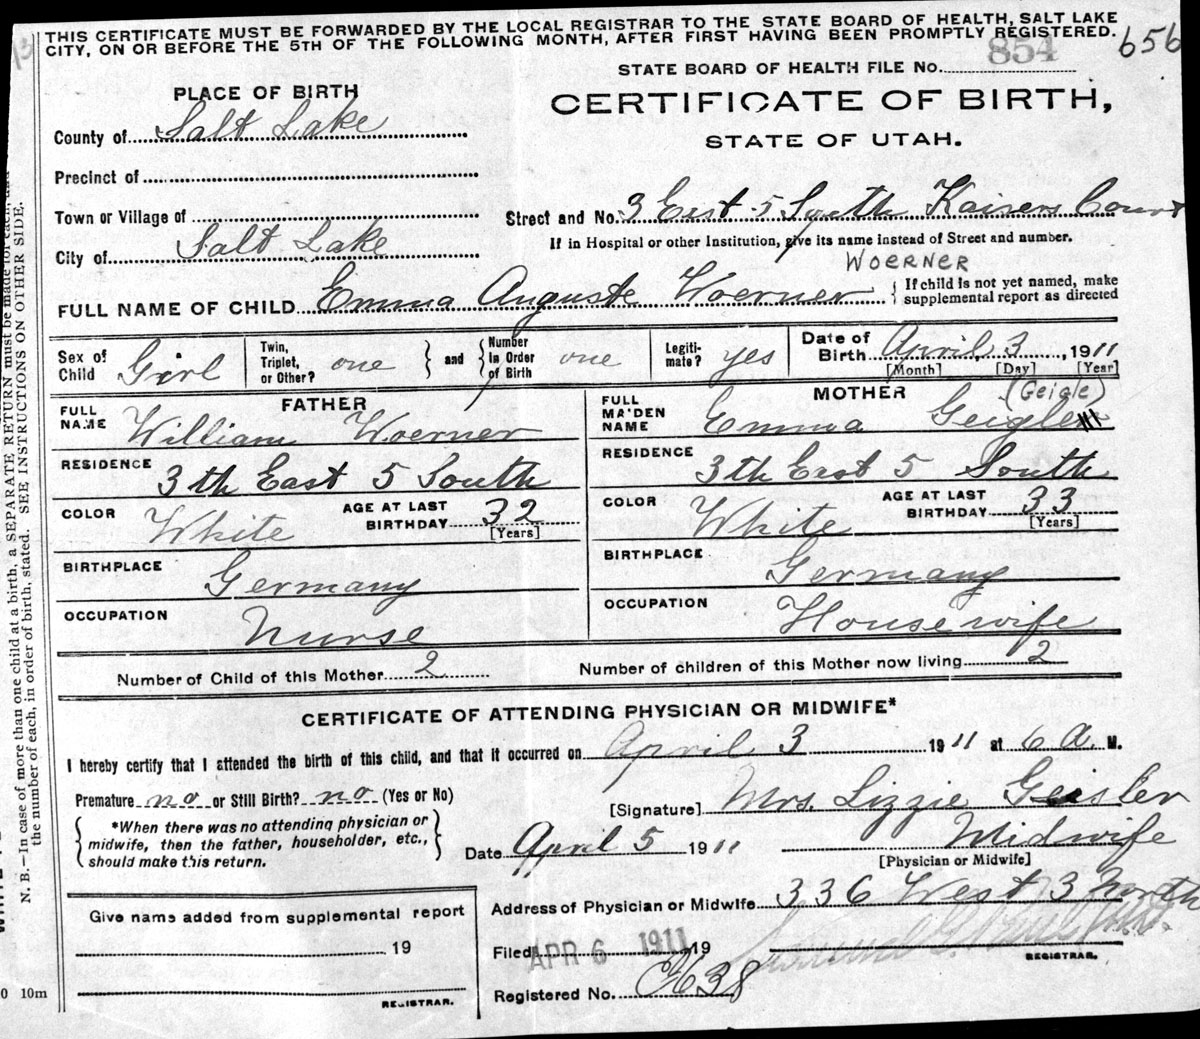 THIS CERTIFICATE MUST BE FORWARDED BY THE LOCAL REGISTRAR TO THE STATE BOARD OF HEALTH, SALT LAKE
CITY, ON OR BEFORE THE 5TH OF THE FOLLOWING MONTH, AFTER FIRST HAVING BEEN PROMPTLY REGISTERED.
656
STATE BOARD OF HEALTH FILE No. 854
PLACE OF BIRTH
CERTIFICATE OF BIRTH,
STATE OF UTAH.
County of Salt Lake
Precinct of
Town or Village of
Street and No. 3 East 5 South Kaisers Court
City of Salt Lake
If in Hospital or other Institution, give its name instead of Street and number.
WOERNER
FULL NAME OF CHILD Emma Auguste Woerner
{ If child is not yet named, make
supplemental report as directed
Sex of Child Girl
Twin, Triplet, or Other? one } and { Number in Order of Birth one
Legiti-mate? yes
Date of Birth April 3, 1911
[Month] [Day] [Year]
FATHER
FULL NAME William Woerner
RESIDENCE 3th East 5 South
COLOR White
AGE AT LAST BIRTHDAY 32
[Years]
BIRTHPLACE Germany
OCCUPATION Nurse
MOTHER
(Geigle)
FULL MAIDEN NAME Emma Geigle
RESIDENCE 3th East 5 South
COLOR White
AGE AT LAST BIRTHDAY 33
[Years]
BIRTHPLACE Germany
OCCUPATION Housewife
Number of Child of this Mother 2
Number of children of this Mother now living 2
CERTIFICATE OF ATTENDING PHYSICIAN OR MIDWIFE*
I hereby certify that I attended the birth of this child, and that it occurred on April 3 1911 at 6 A M.
Premature no or Still Birth? no (Yes or No)
[Signature] Mrs. Lizzie Geisler
{ *When there was no attending physician or
midwife, then the father, householder, etc.,
should make this return. }
Date April 5 1911
Midwife
[Physician or Midwife]
Address of Physician or Midwife 336 West 3 North
Give name added from supplemental report
19
REGISTRAR.
Filed APR 6 1911 19
REGISTRAR.
Registered No. 638
10m
N. B.—In case of more than one child at a birth, a SEPARATE RETURN must be made for each, and
the number of each, in order of birth, stated. SEE INSTRUCTIONS ON OTHER SIDE.